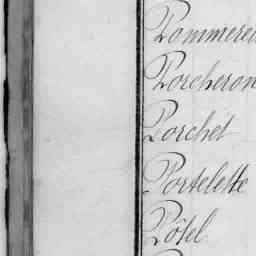 Pommere
Porcheron
Porchet
Portelette
Pôtel